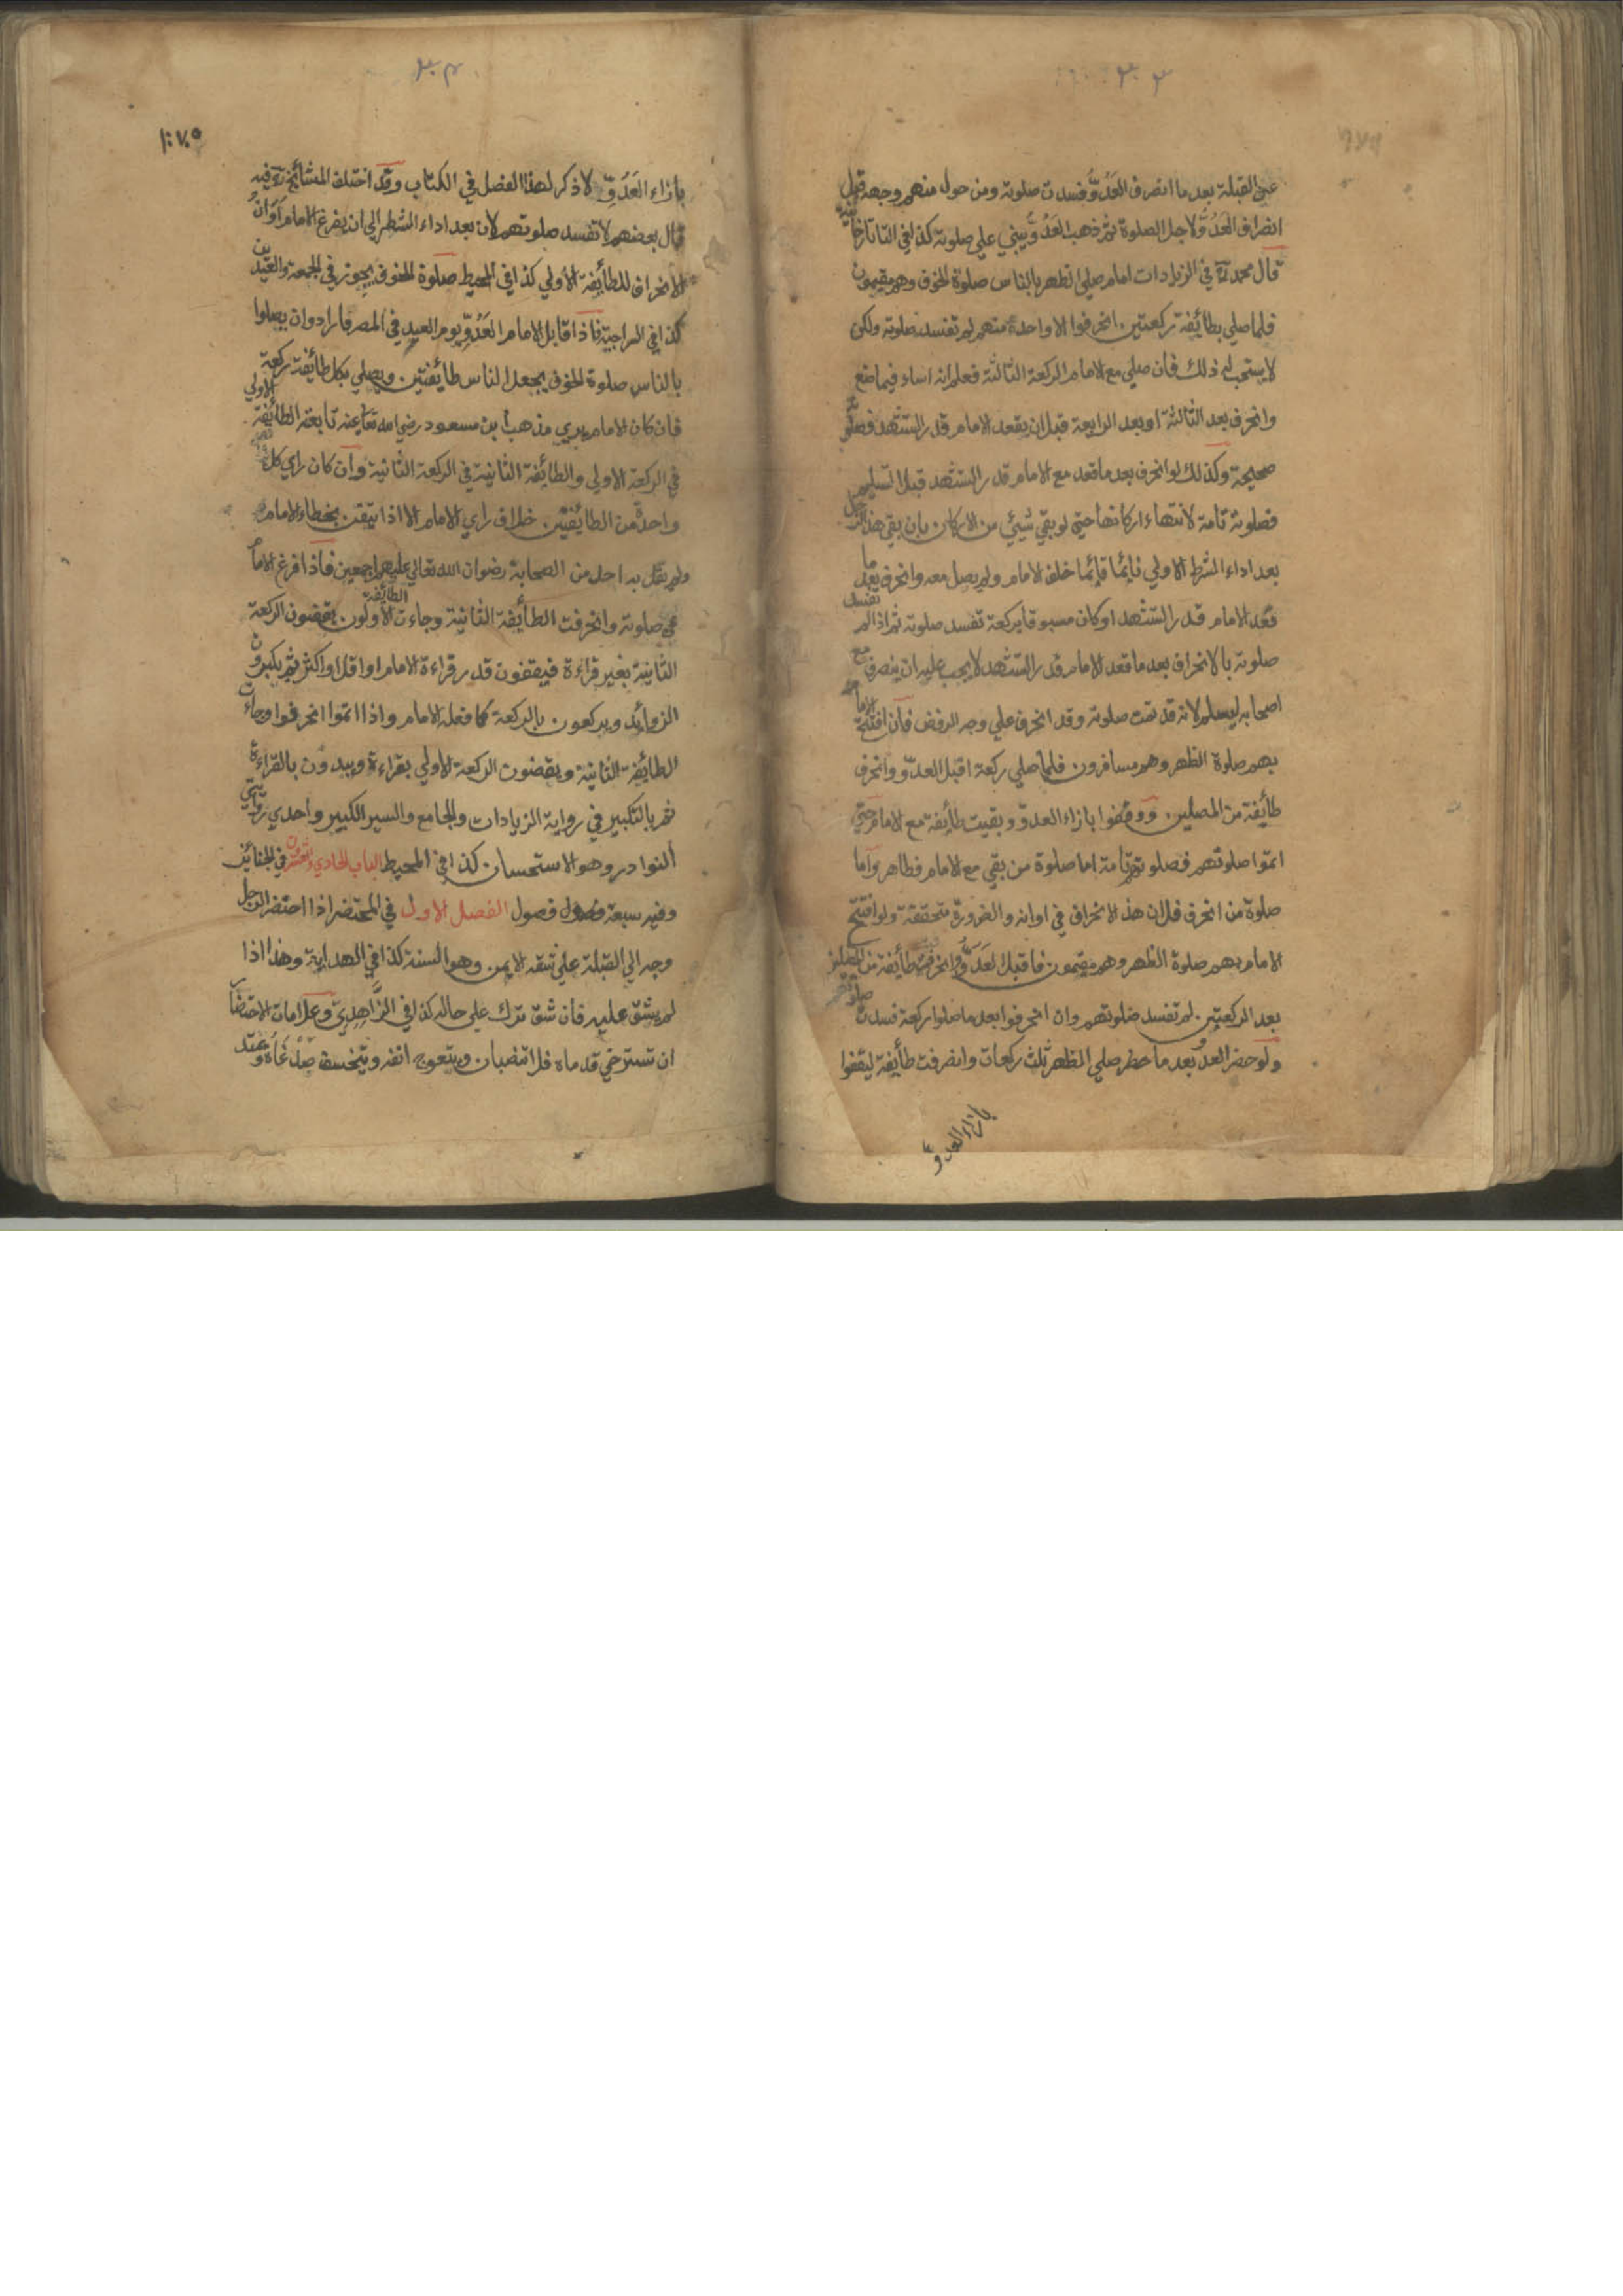 ٣٠٣
عن القبلة بعد ما انصرف العَدُوُّ فسدت صلوته ومن حول منهم وجهه قبل
انصراف العَدُوِّ لاجل الصلوة ثم ذهب العَدُوُّ يبني علي صلوته كذا في التاتارخانية
قال محمد رح في الزيادات امام صلي الظهر بالناس صلوة الخوف وهم مقيمون
فلما صلي بطائفة ركعتين انحرفوا الا واحدة منهم لم تفسد صلوته ولكن
لا يستحب له ذلك فان صلي مع الامام الركعة الثالثة فعلم انه اساء فيما صنع
وانحرف بعد الثالثة او بعد الرابعة قبل ان يقعد الامام قدر التشهد فصلوته
صحيحة وكذلك لو انحرف بعد ما قعد مع الامام قدر التشهد قبل التسليم
فصلوته تامة لانتهاء اركانها حتي لو بقي شيئ من الاركان بان بقي هذا الرجل
بعد اداء الشطر الاولي نائما قائما خلف الامام ولم يصل معه وانحرف بعد ما
قعد الامام قدر التشهد او كان مسبوقا بركعة تفسد صلوته ثم اذا لم تفسد
صلوته بالانحراف بعد ما قعد الامام قدر التشهد لا يجب عليه ان ينصرف مع
اصحابه ليسلم لانه قد تمت صلوته وقد انحرف علي وجه الرفض فان افتتح الامام
بهم صلوة الظهر وهم مسافرون فلما صلي ركعة اقبل العدوّ وانحرف
طائفة من المصلين ووقفوا بازاء العدوّ وبقيت طائفة مع الامام حتي
اتموا صلوتهم فصلوتهم تامة اما صلوة من بقي مع الامام فظاهر واما
صلوة من انحرف فلان هذا الانحراف في اوانه والضرورة متحققة ولو افتتح
الامام بهم صلوة الظهر وهم مقيمون فاقبل العَدُوُّ وانحرفت طائفة من المصلين
بعد الركعتين لم تفسد صلوتهم وان انحرفوا بعد ما صلوا ركعة فسدت صلوتهم
ولو حضر العدو بعد ما حضر صلي الظهر ثلث ركعات وانصرفت طائفة ليقفوا
بازاء العدوّ
٣٠٤
بازاء العَدُوِّ لا ذكر لهذا الفصل في الكتاب وقد اختلف المشائخ رح فيه
قال بعضهم لا تفسد صلوتهم لان بعد اداء الشطر الي ان يفرغ الامام اَوَانُ
الانحراف للطائفة الاولي كذا في المحيط صلوة الخوف يجوز في الجمعة والعيدين
كذا في السراجية فاذا قابل الامام العَدُوَّ يوم العيد في المصر فارادوا ان يصلوا
بالناس صلوة الخوف يجعل الناس طائفتين ويصلي بكل طائفة ركعة
فان كان الامام يري مذهب ابن مسعود رضي الله تعا عنه تابعته الطائفة الاولي
في الركعة الاولي والطائفة الثانية في الركعة الثانية وان كان راي كل
واحدة من الطائفتين خلاف راي الامام الا اذا تيقن بخطاء الامام
ولم يقل به احد من الصحابة رضوان الله تعالي عليهم اجمعين فاذا فرغ الامام
من صلوته وانحرفت الطائفة الثانية وجاءت الطائفة الاولون يقضون الركعة
الثانية بغير قراءة فيقفون قدر قراءة الامام او اقل او اكثر ثم يكبرون
الزوائد ويركعون بالركعة كما فعله الامام واذا اتموا انحرفوا وجاءت
الطائفة الثانية ويقضون الركعة الاولي بقراءة ويبدون بالقراءة
ثم بالتكبير في رواية الزيادات والجامع والسير الكبير واحدي روايتي
النوادر وهو الاستحسان كذا في المحيط الباب الحادي والعشرون في الجنائز
وفيه سبعة فصول الفصل الاول في المحتضر اذا احتضر الرجل
وجه الي القبلة علي شقه الايمن وهو السنة كذا في الهداية وهذا اذا
لم يشق عليه فان شق ترك علي حاله كذا في الزَّاهِدِيّ وعلامات الاحتضار
ان تسترخي قدماه فلا تنتصبان ويتعوج انفه ويتخسف صُدْغَاهُ وتمتد